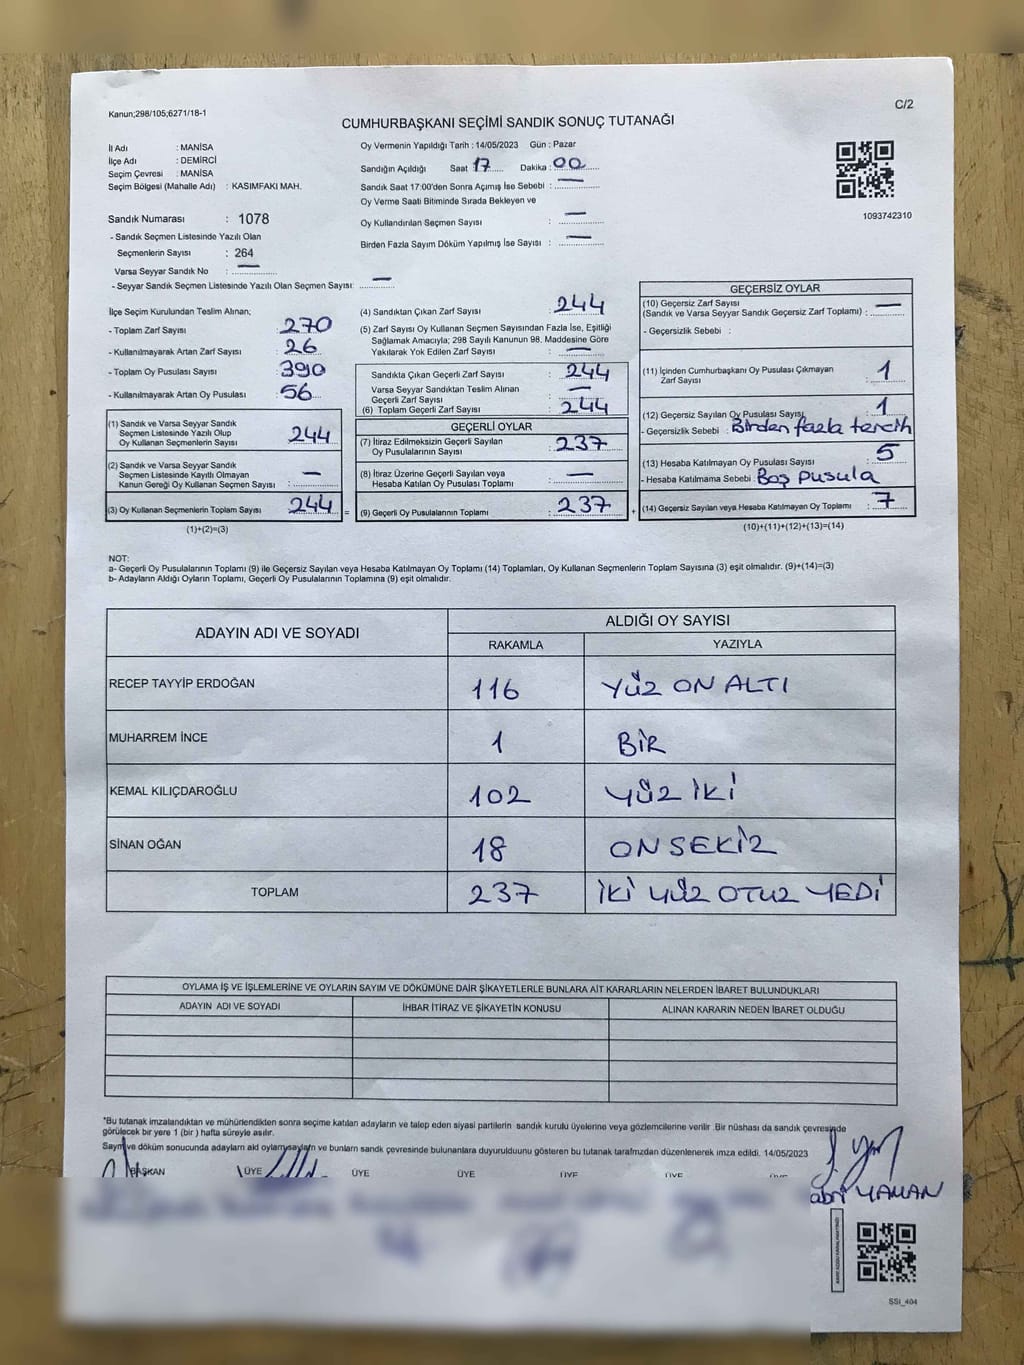 Kanun;298/105;6271/18-1
C/2
CUMHURBAŞKANI SEÇİMİ SANDIK SONUÇ TUTANAĞI
İl Adı : MANİSA
İlçe Adı : DEMİRCİ
Seçim Çevresi : MANİSA
Seçim Bölgesi (Mahalle Adı) : KASIMFAKI MAH.
Sandık Numarası : 1078
- Sandık Seçmen Listesinde Yazılı Olan
Seçmenlerin Sayısı : 264
Varsa Seyyar Sandık No : —
- Seyyar Sandık Seçmen Listesinde Yazılı Olan Seçmen Sayısı: —
Oy Vermenin Yapıldığı Tarih : 14/05/2023 Gün : Pazar
Sandığın Açıldığı Saat 17 Dakika : 00
Sandık Saat 17:00'den Sonra Açımış İse Sebebi : —
Oy Verme Saati Bitiminde Sırada Bekleyen ve
Oy Kullandırılan Seçmen Sayısı : —
Birden Fazla Sayım Döküm Yapılmış İse Sayısı : —
1093742310
İlçe Seçim Kurulundan Teslim Alınan;
- Toplam Zarf Sayısı : 270
- Kullanılmayarak Artan Zarf Sayısı : 26
- Toplam Oy Pusulası Sayısı : 390
- Kullanılmayarak Artan Oy Pusulası : 56
(1) Sandık ve Varsa Seyyar Sandık
Seçmen Listesinde Yazılı Olup
Oy Kullanan Seçmenlerin Sayısı : 244
(2) Sandık ve Varsa Seyyar Sandık
Seçmen Listesinde Kayıtlı Olmayan
Kanun Gereği Oy Kullanan Seçmen Sayısı : —
(3) Oy Kullanan Seçmenlerin Toplam Sayısı : 244 =
(1)+(2)=(3)
(4) Sandıktan Çıkan Zarf Sayısı : 244
(5) Zarf Sayısı Oy Kullanan Seçmen Sayısından Fazla İse, Eşitliği
Sağlamak Amacıyla; 298 Sayılı Kanunun 98. Maddesine Göre
Yakılarak Yok Edilen Zarf Sayısı : —
Sandıkta Çıkan Geçerli Zarf Sayısı : 244
Varsa Seyyar Sandıktan Teslim Alınan
Geçerli Zarf Sayısı : —
(6) Toplam Geçerli Zarf Sayısı : 244
GEÇERLİ OYLAR
(7) İtiraz Edilmeksizin Geçerli Sayılan
Oy Pusulalarının Sayısı : 237
(8) İtiraz Üzerine Geçerli Sayılan veya
Hesaba Katılan Oy Pusulası Toplamı : —
(9) Geçerli Oy Pusulalarının Toplamı : 237 +
GEÇERSİZ OYLAR
(10) Geçersiz Zarf Sayısı
(Sandık ve Varsa Seyyar Sandık Geçersiz Zarf Toplamı) : —
- Geçersizlik Sebebi :
(11) İçinden Cumhurbaşkanı Oy Pusulası Çıkmayan
Zarf Sayısı : 1
(12) Geçersiz Sayılan Oy Pusulası Sayısı : 1
- Geçersizlik Sebebi : Birden fazla tercih
(13) Hesaba Katılmayan Oy Pusulası Sayısı : 5
- Hesaba Katılmama Sebebi : Boş pusula
(14) Geçersiz Sayılan veya Hesaba Katılmayan Oy Toplamı : 7
(10)+(11)+(12)+(13)=(14)
NOT:
a- Geçerli Oy Pusulalarının Toplamı (9) ile Geçersiz Sayılan veya Hesaba Katılmayan Oy Toplamı (14) Toplamları, Oy Kullanan Seçmenlerin Toplam Sayısına (3) eşit olmalıdır. (9)+(14)=(3)
b- Adayların Aldığı Oyların Toplamı, Geçerli Oy Pusulalarının Toplamına (9) eşit olmalıdır.
ADAYIN ADI VE SOYADI ALDIĞI OY SAYISI
RAKAMLA YAZIYLA
RECEP TAYYİP ERDOĞAN 116 YÜZ ON ALTI
MUHARREM İNCE 1 BİR
KEMAL KILIÇDAROĞLU 102 YÜZ İKİ
SİNAN OĞAN 18 ON SEKİZ
TOPLAM 237 İKİ YÜZ OTUZ YEDİ
OYLAMA İŞ VE İŞLEMLERİNE VE OYLARIN SAYIM VE DÖKÜMÜNE DAİR ŞİKAYETLERLE BUNLARA AİT KARARLARIN NELERDEN İBARET BULUNDUKLARI
ADAYIN ADI VE SOYADI İHBAR İTİRAZ VE ŞİKAYETİN KONUSU ALINAN KARARIN NEDEN İBARET OLDUĞU
*Bu tutanak imzalandıktan ve mühürlendikten sonra seçime katılan adayların ve talep eden siyasi partilerin sandık kurulu üyelerine veya gözlemcilerine verilir. Bir nüshası da sandık çevresinde
görülecek bir yere 1 (bir) hafta süreyle asılır.
Sayım ve döküm sonucunda adayların aldığı oyların sayıların ve bunların sandık çevresinde bulunanlara duyurulduğunu gösteren bu tutanak tarafımızdan düzenlenerek imza edildi. 14/05/2023
BAŞKAN ÜYE ÜYE ÜYE ÜYE ÜYE ÜYE
YAMAN
SSI_404